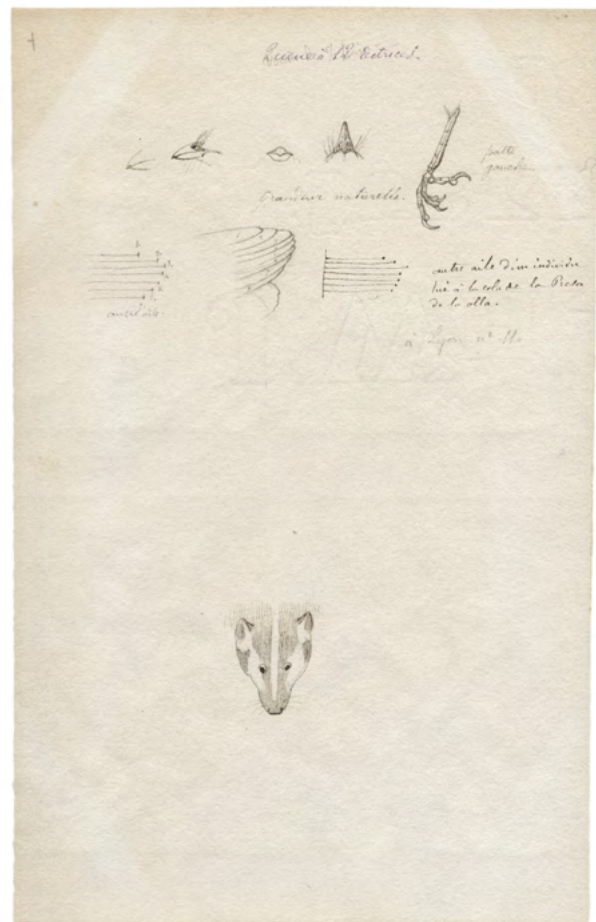 12 rectrices.
patte
gauche.
Grandeur naturelle.
autre aile d'un individu
tué à la cola de la Presa
de la olla.
autre aile.
à Lyon nº